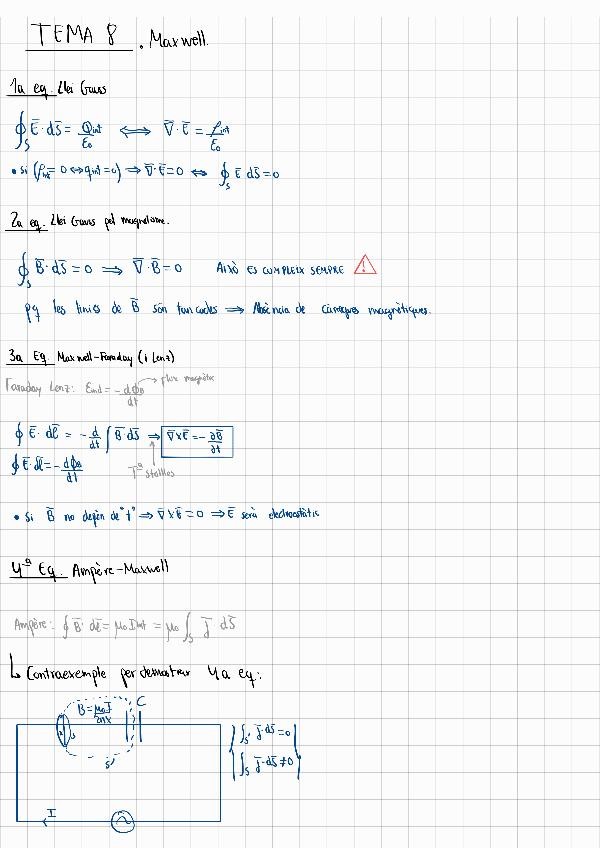 TEMA 8 . Maxwell.
1a eq. Llei Gauss
∮_S Ē·dS̄ = Q_int/ε₀ ⟺ ∇̄·Ē = ρ_int/ε₀
• Si (ρ_int = 0 ⟺ q_int = 0) ⟹ ∇̄·Ē = 0 ⟺ ∮_S Ē dS̄ = 0
2a eq. Llei Gauss pel magnetisme.
∮_S B̄·dS̄ = 0 ⟹ ∇̄·B̄ = 0 AIXÒ ES CUMPLEIX SEMPRE ⚠
pq les línies de B̄ són tancades ⟹ Absència de càrregues magnètiques.
3a Eq. Maxwell-Faraday (i Lenz)
Faraday Lenz: ε_ind = -dϕ_B/dt → flux magnètic
∮ Ē·dl̄ = -d/dt ∫ B̄·dS̄ ⟹ ∇̄×Ē = -∂B̄/∂t
∮ Ē·dl̄ = -dϕ_B/dt Tª Stokes
• Si B̄ no depèn de "t" ⟹ ∇̄×Ē = 0 ⟹ Ē serà electroestàtic
4ª Eq. Ampère-Maxwell
Ampère: ∮ B̄·dl̄ = μ₀ I_int = μ₀ ∫_S J̄ dS̄
↳ Contraexemple per demostrar 4a eq:
B = μ₀I/2πx C
S
S'
∫_S' J̄·dS̄ = 0
∫_S J̄·dS̄ ≠ 0
I